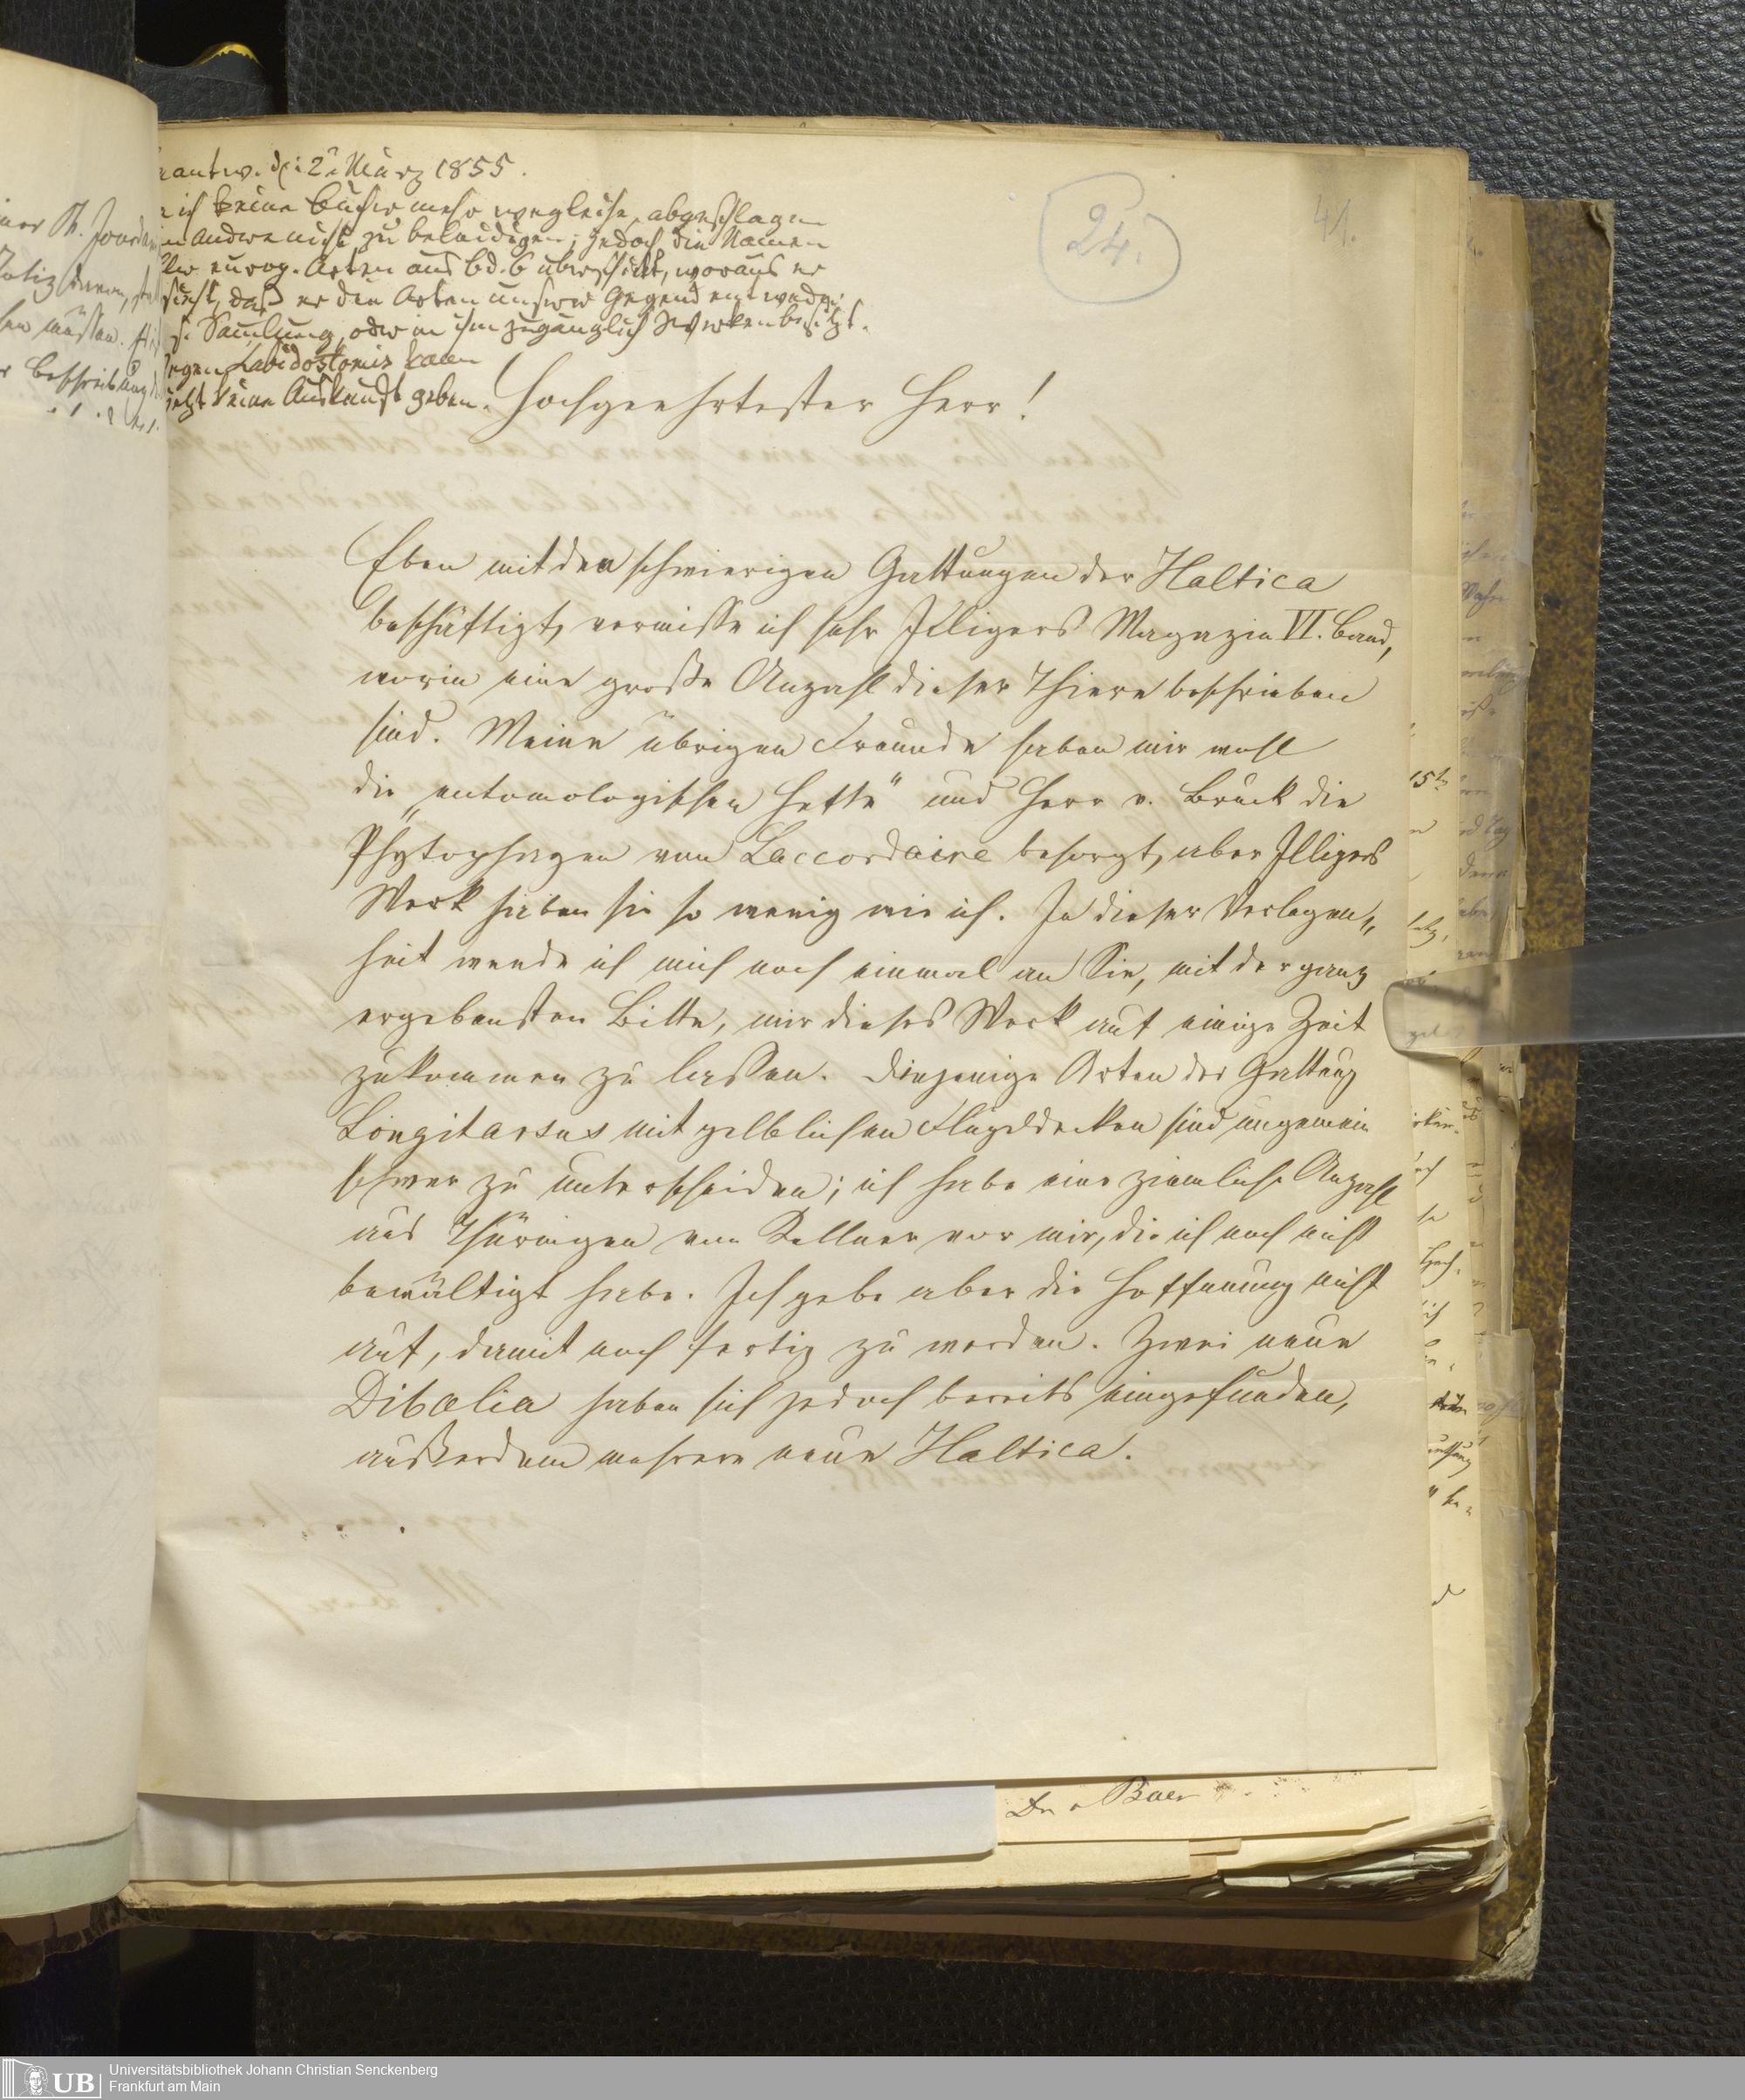 antw. d: 2: März 1855.
ich keine Bücher mehr wegleihe, abgeschlagen
Andre nicht zu beleidigen; jedoch die Namen
europ. Arten aus Bd. 6 überschickt, woraus er
sieht, daß er die Arten unsrer Gegend entweder
s. Samlung, oder in ihm zugänglich Werken besitzt.
wegen Labidostomis kann
jetzt keine Auskunft geben.
24.
41.
Hochgeehrtester Herr!
Eben mit den schwierigen Gattungen der Haltica
beschäftigt, vermisse ich sehr Illigers Magazin VI. Band,
worin eine große Anzahl dieser Thiere beschrieben
sind. Meine übrigen Freunde haben mir wohl
die „entomologischen Hefte" und Herr v. Bruck die
Phytophagen von Laccordaire besorgt, aber Illigers
Werk haben sie so wenig wie ich. In dieser Verlegen„
heit wende ich mich noch einmal an Sie, mit der ganz
ergebensten Bitte, mir dieses Werk auf einige Zeit
zukommen zu lassen. Diejenige Arten der Gattung
Longitarsus mit gelblichen Flügeldecken sind ungemein
schwer zu unterscheiden; ich habe eine ziemliche Anzahl
aus Thüringen von Kellner vor mir, die ich noch nicht
bewältigt habe. Ich gebe aber die Hoffnung nicht
auf, damit noch fertig zu werden. Zwei neue
Dibolia haben sich jedoch bereits eingefunden,
außerdem mehrere neue Haltica.
Dr. Baer
UB
Universitätsbibliothek Johann Christian Senckenberg
Frankfurt am Main